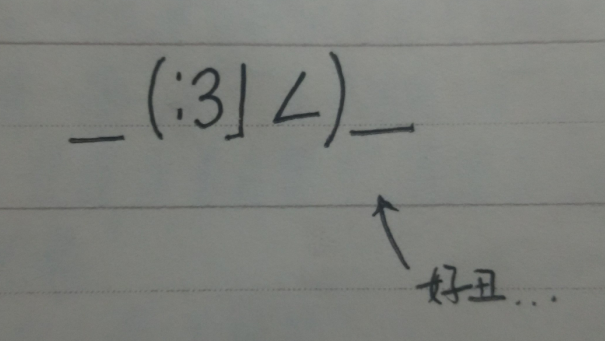 _(:3」∠)_
好丑...